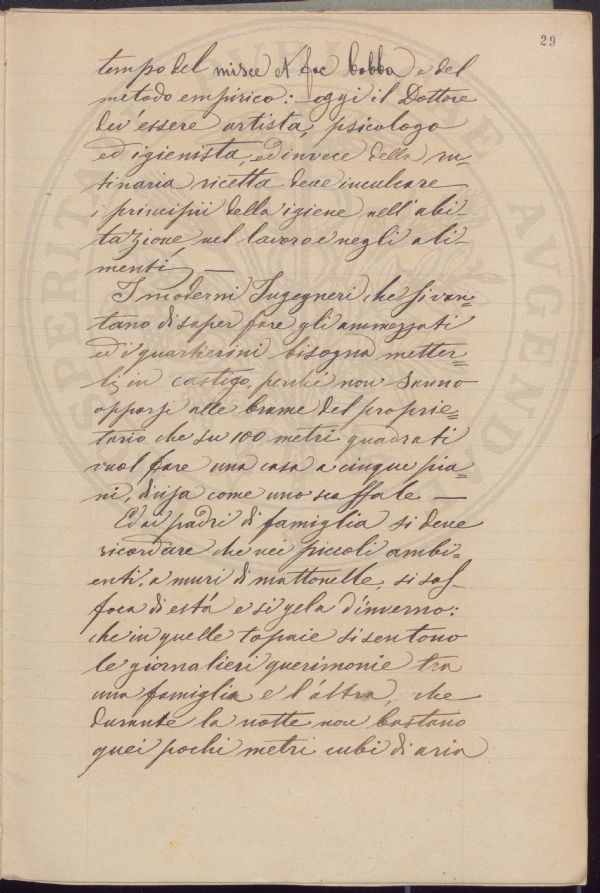 29
tempo del misce et fac bobba e del
metodo empirico: oggi il Dottore
dev'essere artista, psicologo
ed igienista, ed invece della ru-
tinaria ricetta deve inculcare
i principii della igiene nell'abi-
tazione, nel lavoro e negli ali-
menti, —
I moderni Ingegneri che si van=
tano di saper fare gli ammezzati
ed i quartierini bisogna metter-
li, in castigo, perché non sanno
opporsi alle brame del proprie=
tario che su 100 metri quadrati
vuol fare una casa a cinque pia=
ni, divisa come uno scaffale. —
Ed ai padri di famiglia si deve
ricordare che nei piccoli ambi=
enti, a muri di mattonelle, si sof-
foca di està e si gela d'inverno:
che in quelle topaie si sentono
le giornalieri querimonie tra
una famiglia e l'altra, che
durante la notte non bastano
quei pochi metri cubi di aria
PROSPERITATI PUBLICAE AVGENDAE